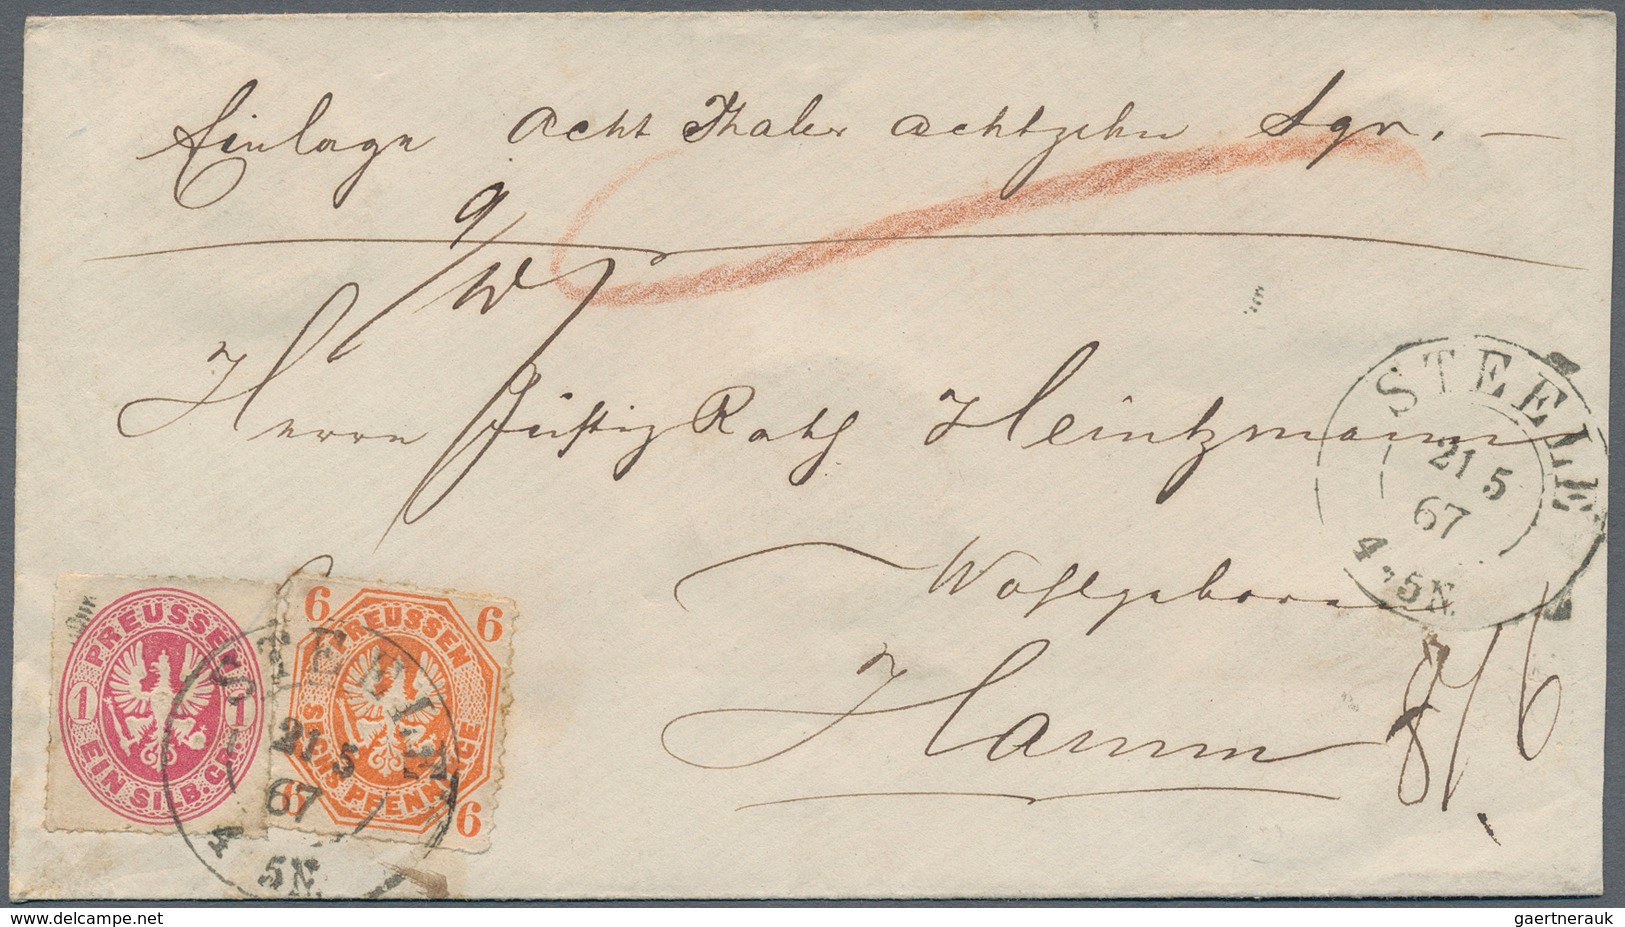 Einlage acht Thaler achtzehn Sgr. —
9/
Herrn Justiz Rath Heintzmann
Wohlgeboren
Hamm
STEELE
21 5
67
4-5N.
PREUSSEN
1 1
EIN SILB. GR.
6 6
PREUSSEN
SECHS PFENNINGE
6 6
STEELE
21 5
67
4 5N.
delcampe.net
gaertnerauk